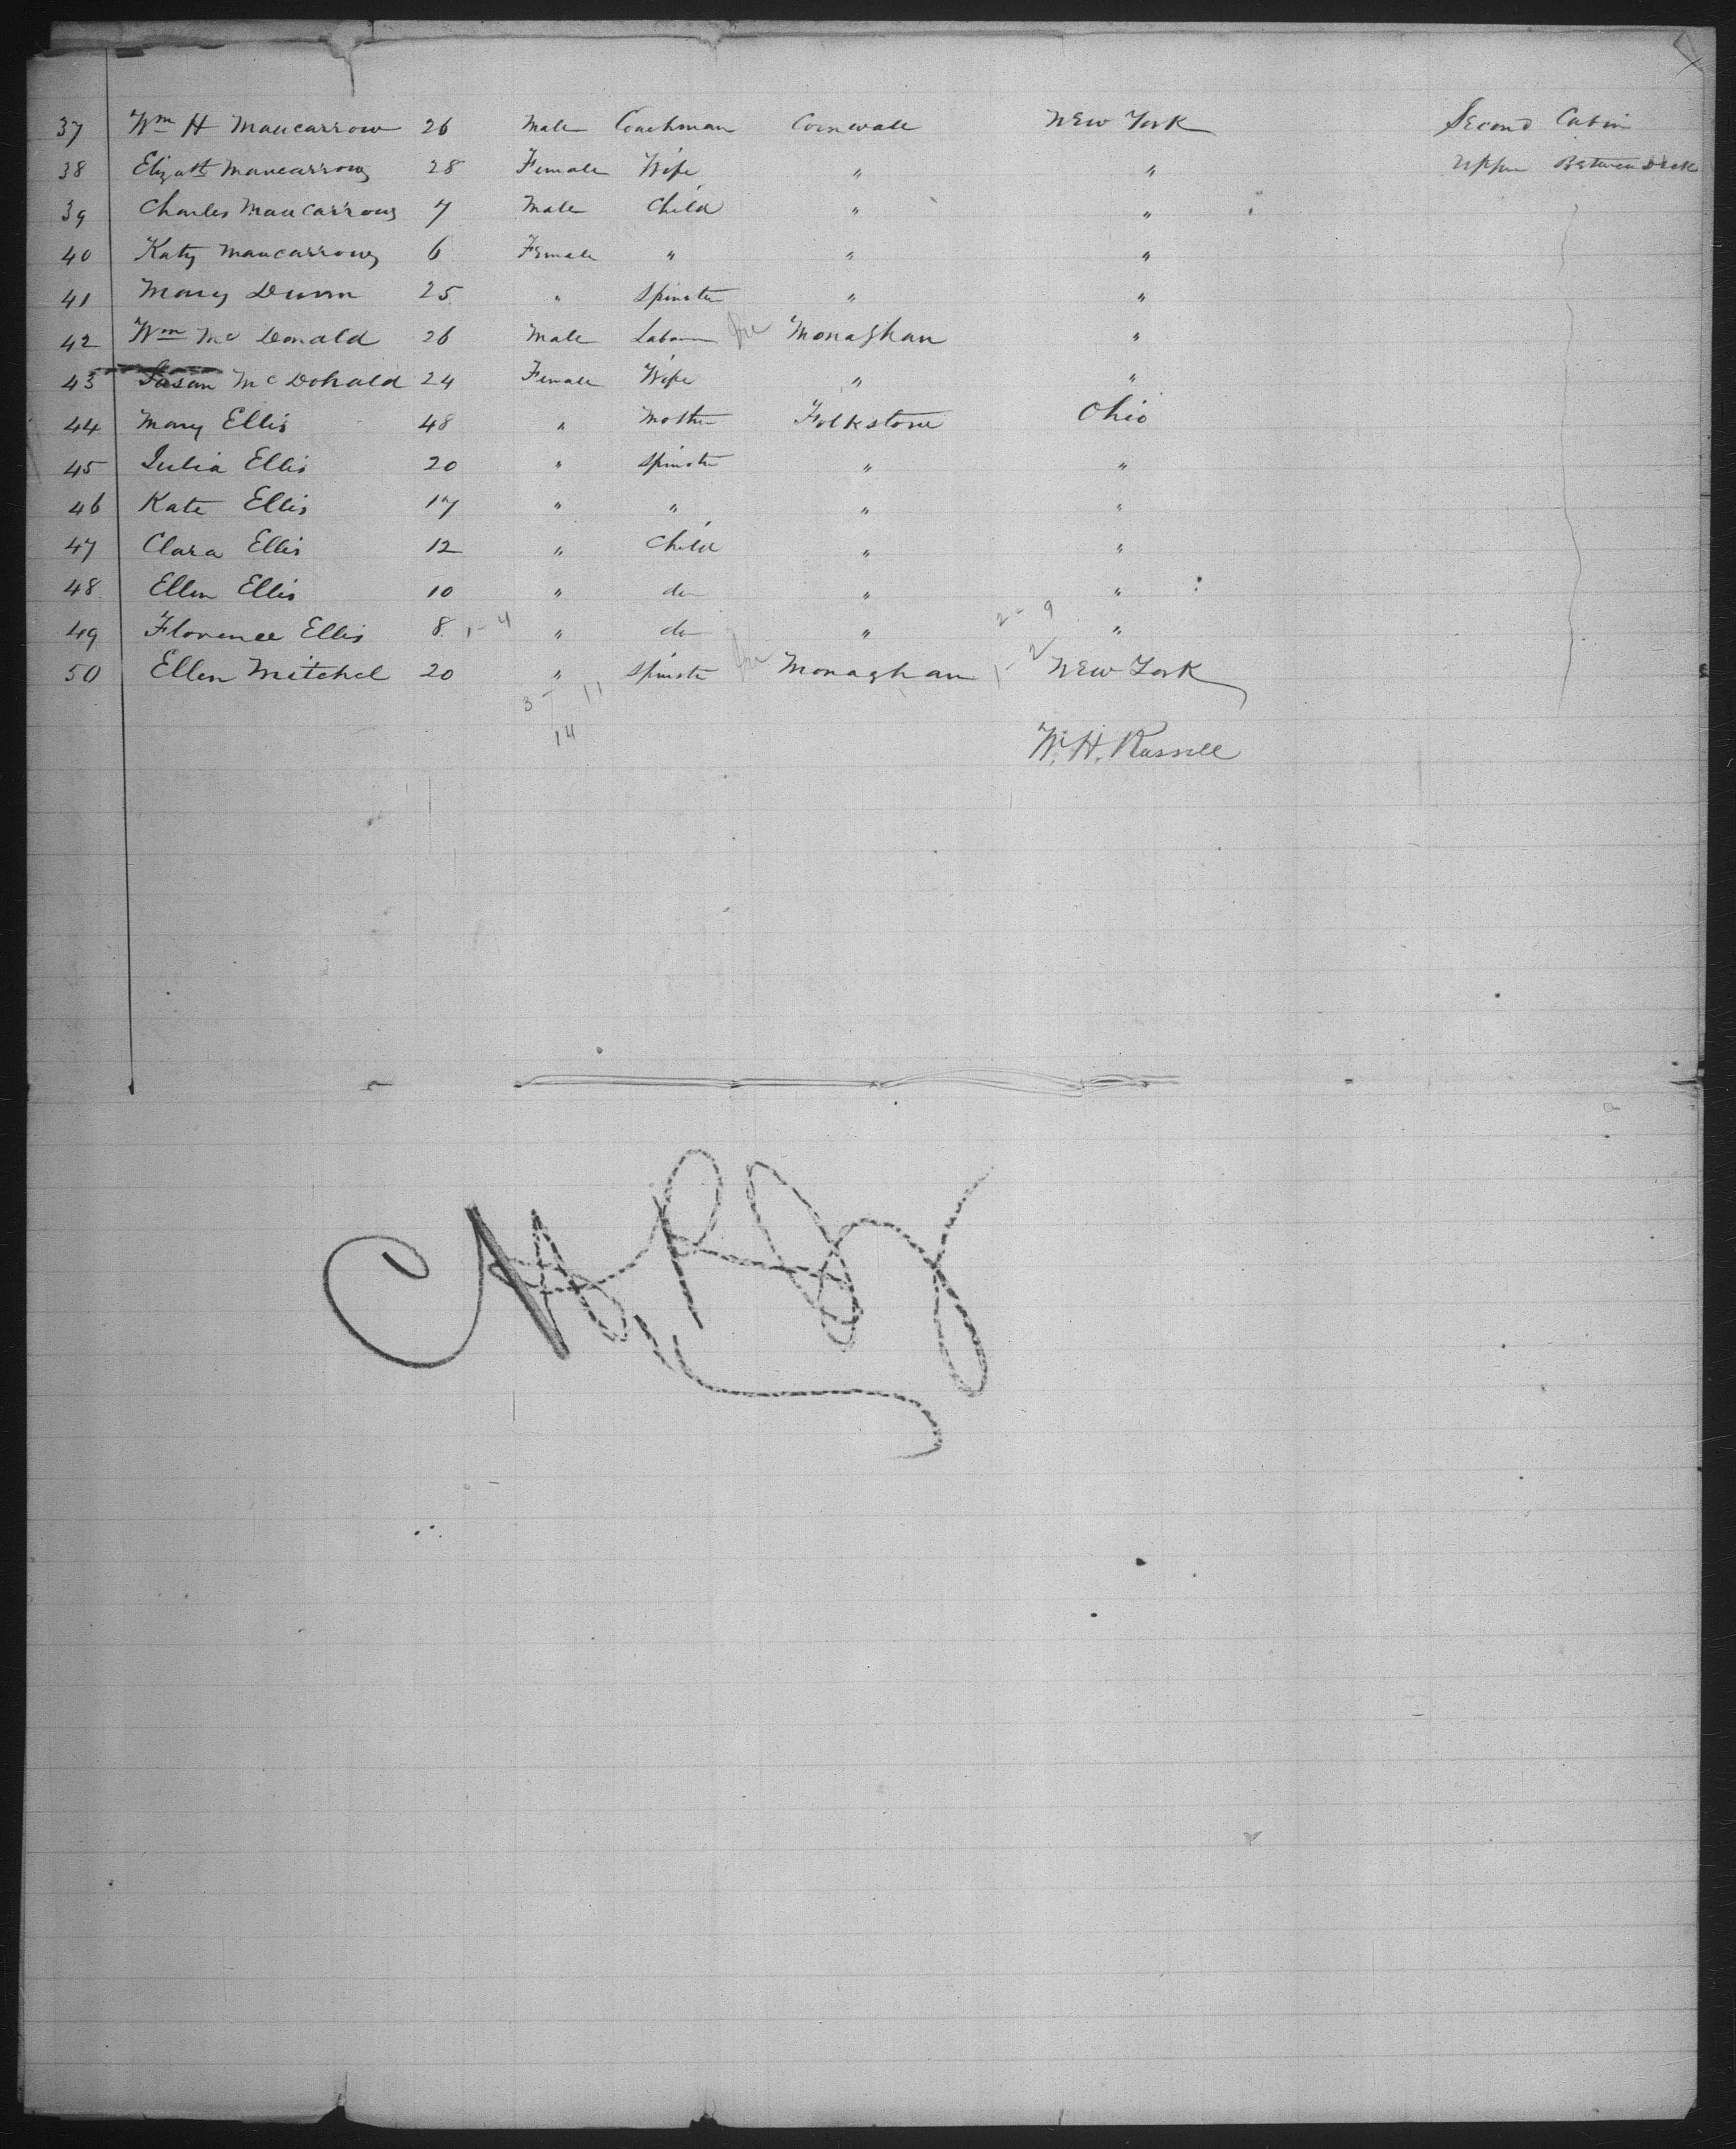 37 Wm H Mancarrow 26 Male Coachman Cornwall New York Second Cabin
38 Elizath Mancarrow 28 Female Wife " " Upper Between Deck
39 Charles Mancarrow 7 Male Child " "
40 Katy Mancarrow 6 Female " " "
41 Mary Dunn 25 " Spinster " "
42 Wm Mc Donald 26 Male Labourer Ire Monaghan "
43 Susan Mc Donald 24 Female Wife " "
44 Mary Ellis 48 " Mother Folkstone Ohio
45 Julia Ellis 20 " Spinster " "
46 Kate Ellis 17 " " " "
47 Clara Ellis 12 " Child " "
48 Ellen Ellis 10 " do " "
49 Florence Ellis 8 1-4 " do " 2-9 "
50 Ellen Mitchel 20 " Spinster Ire Monaghan 1-2 New York
3-11
14
W. H. Russell